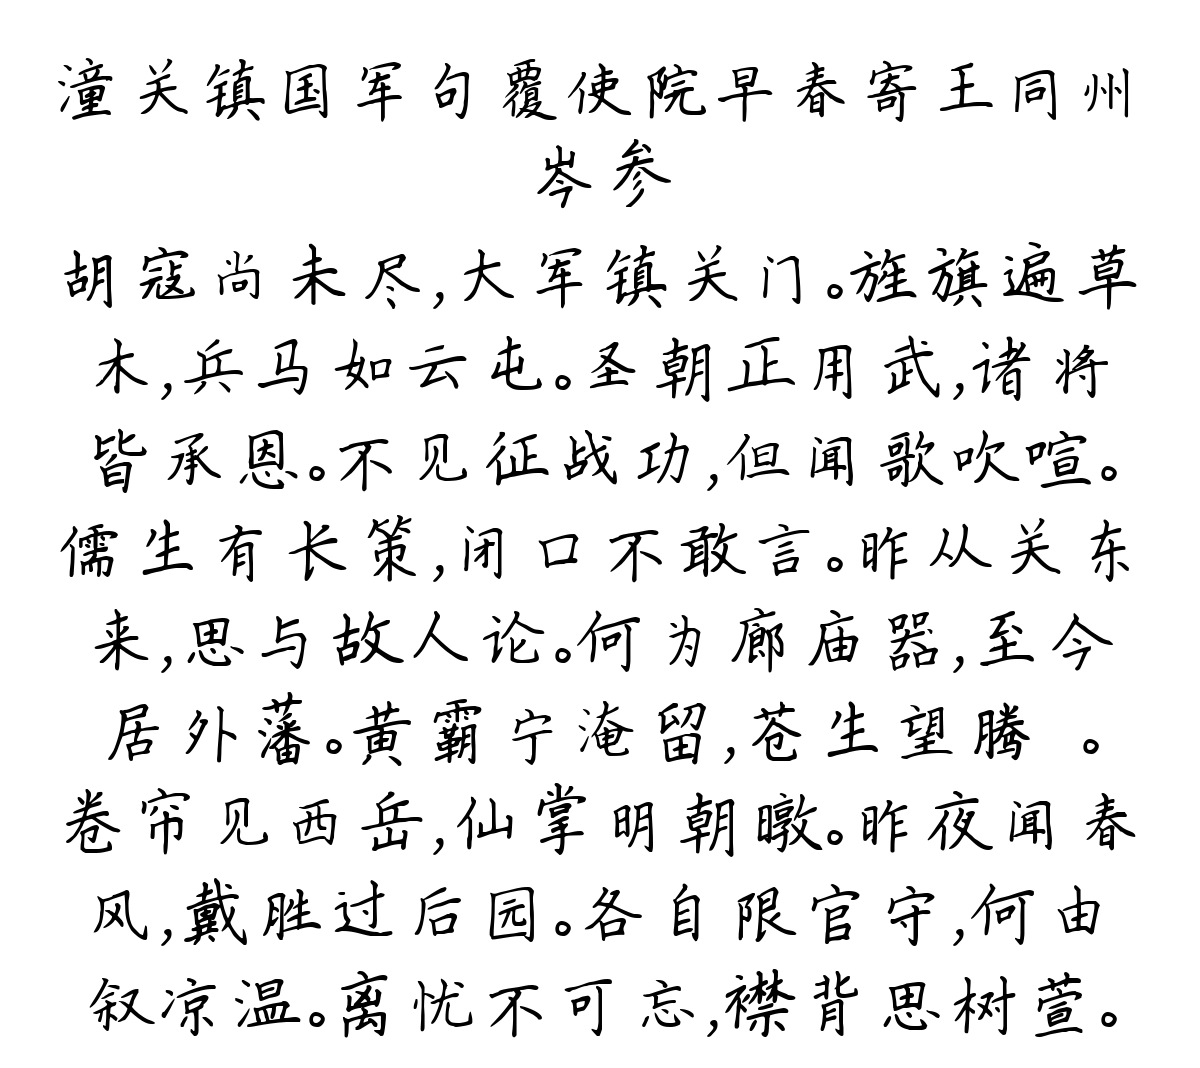 潼关镇国军句覆使院早春寄王同州
岑参
胡寇尚未尽,大军镇关门。旌旗遍草
木,兵马如云屯。圣朝正用武,诸将
皆承恩。不见征战功,但闻歌吹喧。
儒生有长策,闭口不敢言。昨从关东
来,思与故人论。何为廊庙器,至今
居外藩。黄霸宁淹留,苍生望腾 。
卷帘见西岳,仙掌明朝暾。昨夜闻春
风,戴胜过后园。各自限官守,何由
叙凉温。离忧不可忘,襟背思树萱。